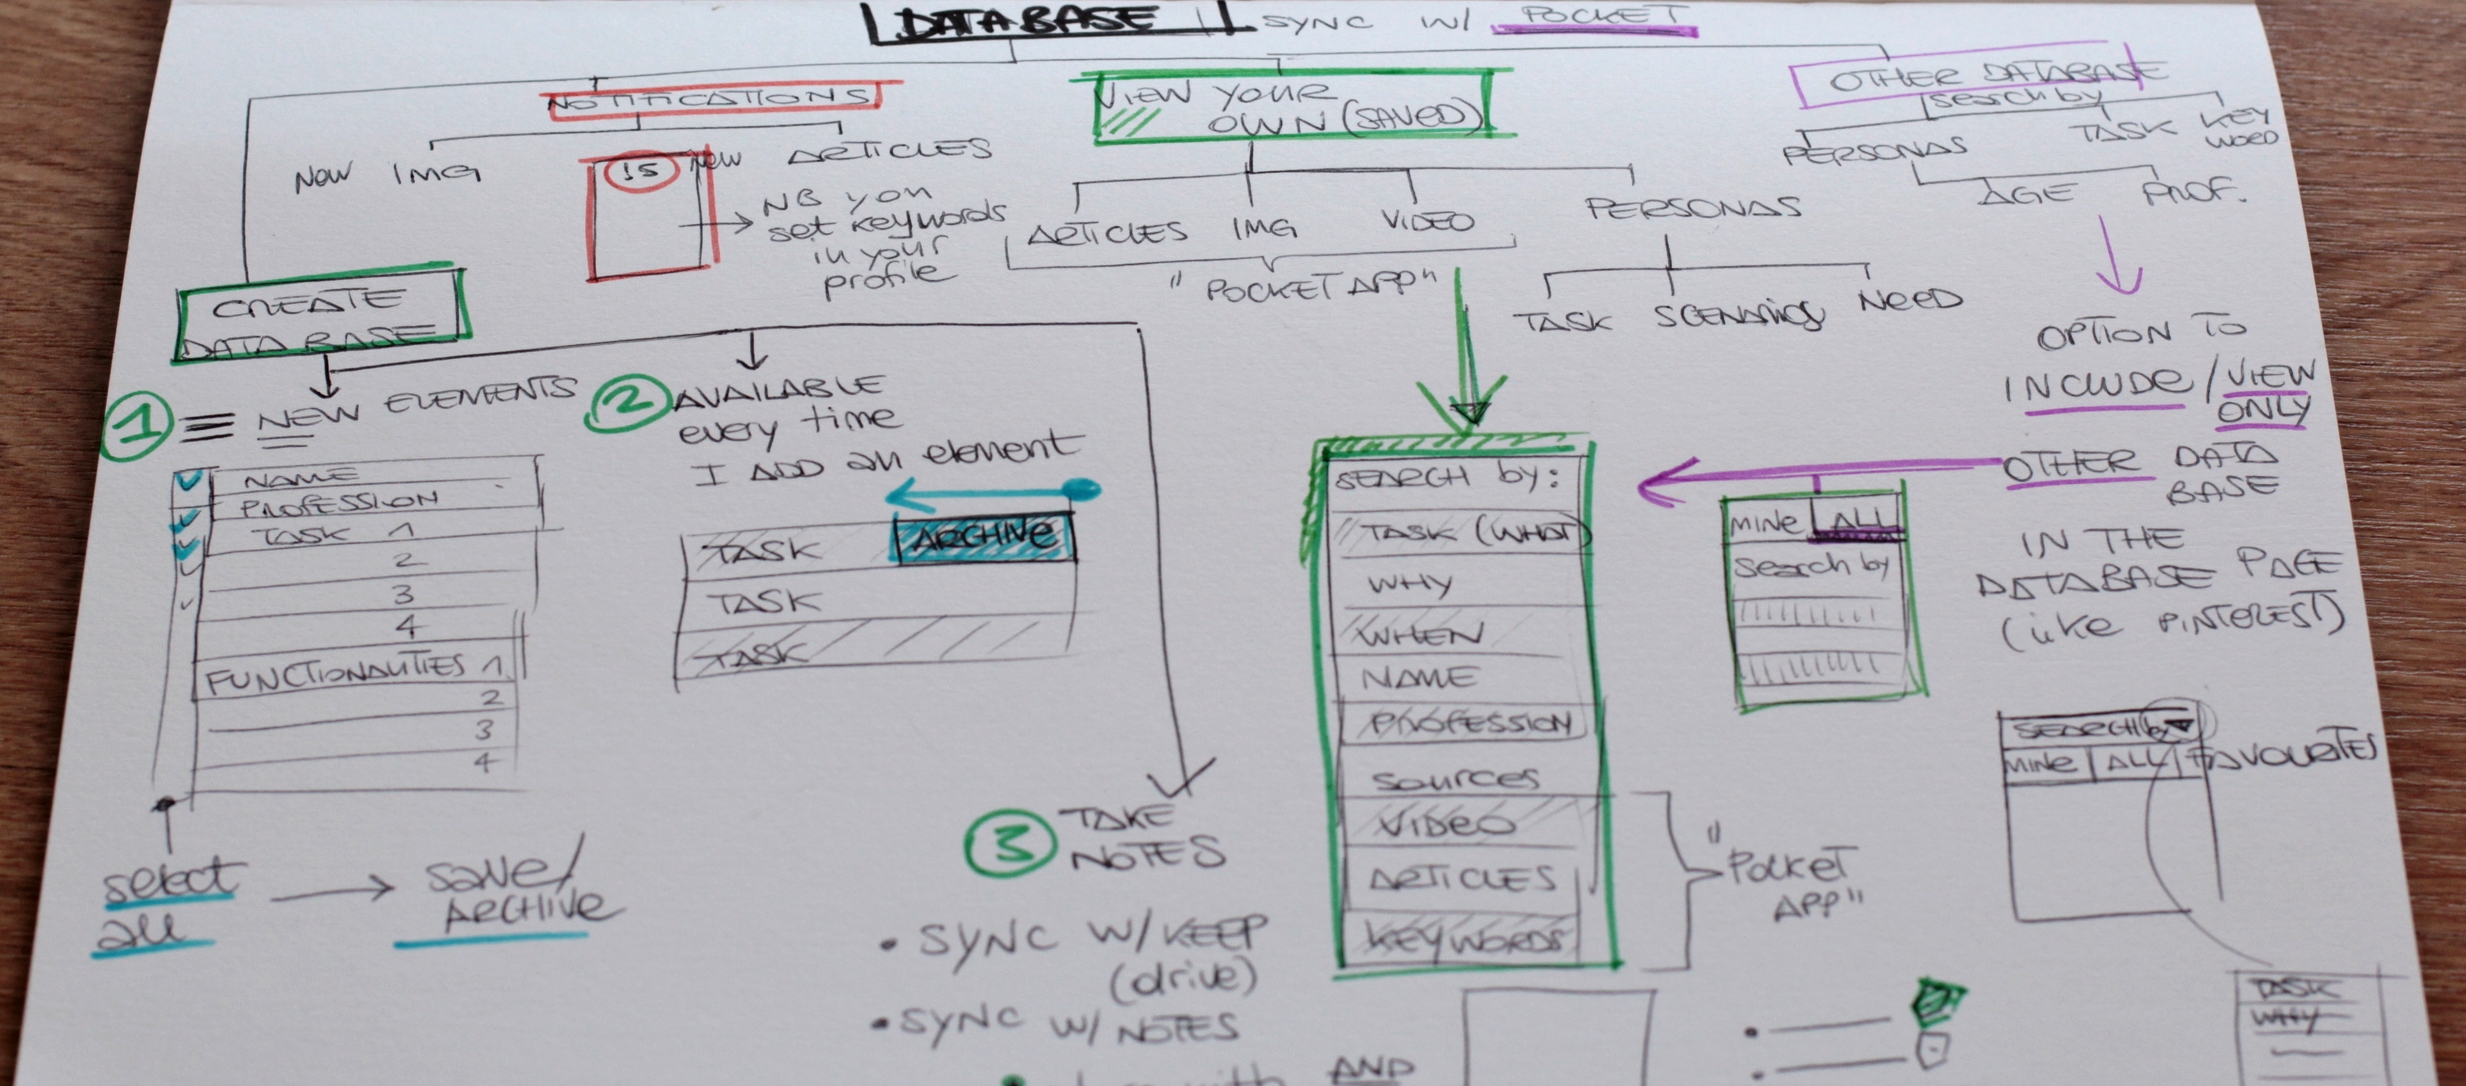 DATABASE SYNC W/ POCKET
NOTIFICATIONS
NEW IMG
NEW ARTICLES
15
NB you
set keywords
in your
profile
VIEW YOUR
OWN (SAVED)
ARTICLES IMG VIDEO PERSONAS
"POCKET APP"
TASK SCENARIOS NEED
OTHER DATABASE
search by
PERSONAS TASK KEY
WORD
AGE PROF.
OPTION TO
INCLUDE / VIEW
ONLY
OTHER DATA
BASE
IN THE
DATABASE PAGE
(like PINTEREST)
CREATE
DATA BASE
1 NEW ELEMENTS
NAME
PROFESSION
TASK 1
2
3
4
FUNCTIONALITIES 1
2
3
4
select
all
save/
ARCHIVE
2 AVAILABLE
every time
I ADD an element
TASK ARCHIVE
TASK
TASK
3 TAKE
NOTES
• SYNC W/ KEEP
(drive)
• SYNC W/ NOTES
AND
SEARCH by:
TASK (WHAT)
WHY
WHEN
NAME
PROFESSION
SOURCES
VIDEO
ARTICLES
KEYWORDS
"POCKET
APP"
MINE ALL
search by
SEARCH by
MINE ALL FAVOURITES
TASK
WHY